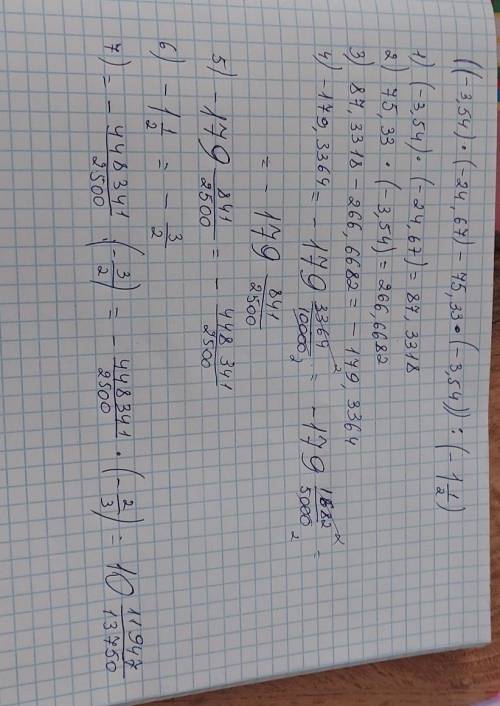 ((-3,54)·(-24,67)-75,33·(-3,54)):(-1 1/2)
1) (-3,54)·(-24,67)=87,3318
2) 75,33·(-3,54)=266,6682
3) 87,3318-266,6682=-179,3364
4) -179,3364=-179 3364/10000 = -179 1682/5000 =
= -179 841/2500
5) -179 841/2500 = - 448341/2500
6) -1 1/2 = - 3/2
7) = - 448341/2500 : (- 3/2) = - 448341/2500 · (- 2/3) = 10 11947/13750